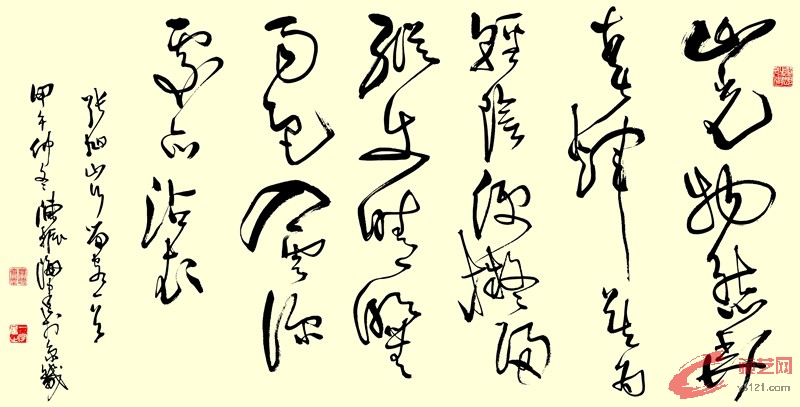 山光物態弄
春暉莫為
輕陰便擬歸
縱使晴明無
雨色入雲深
處亦沾衣
張旭山行留客一首
甲午仲冬陳振海書於京
艺网